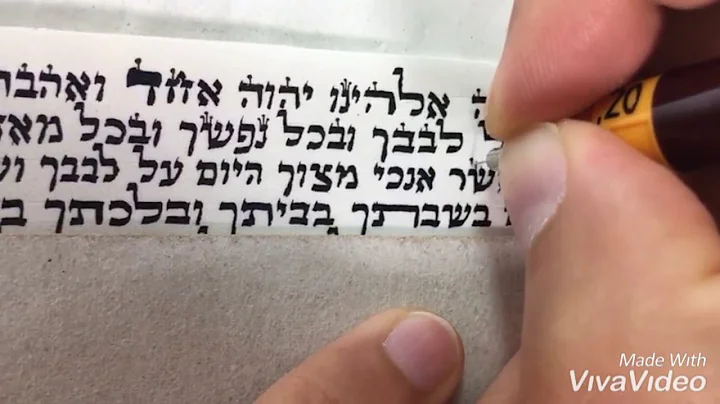 אלהינו יהוה אחד ואהבת
לבבך ובכל נפשך ובכל מאד
אשר אנכי מצוך היום על לבבך וש
בשבתך בביתך ובלכתך ב
.20
Made With
VivaVideo